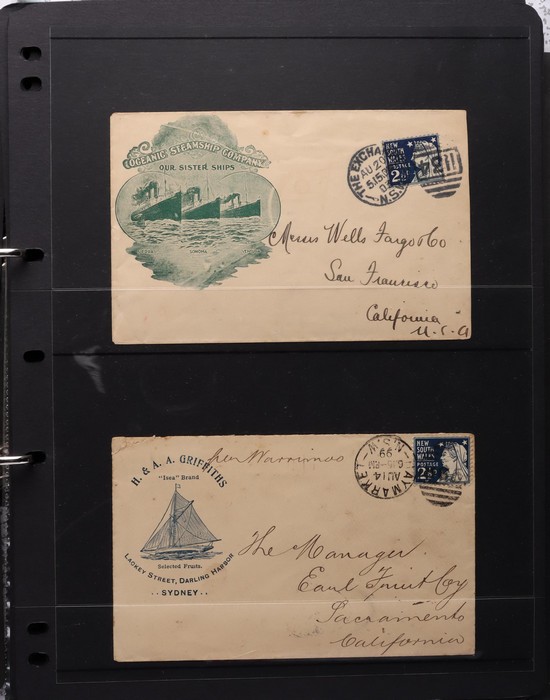 OCEANIC STEAMSHIP COMPANY
OUR SISTER SHIPS
SONOMA
THE EXCHA
AU 20
5.15
N.S.
NEW
SOUTH
WALES
POSTAGE
2½
Messrs Wells Fargo & Co
San Francisco
California
U.S.A
H. & A. A. GRIFFITHS
"Issa" Brand
Selected Fruits.
LACKEY STREET, DARLING HARBOR
..SYDNEY..
per Warrimoo
HAYMARKET
AU 14
99
N.S.W.
NEW
SOUTH
WALES
POSTAGE
2½
The Manager.
Earl Fruit Coy
Sacramento
California